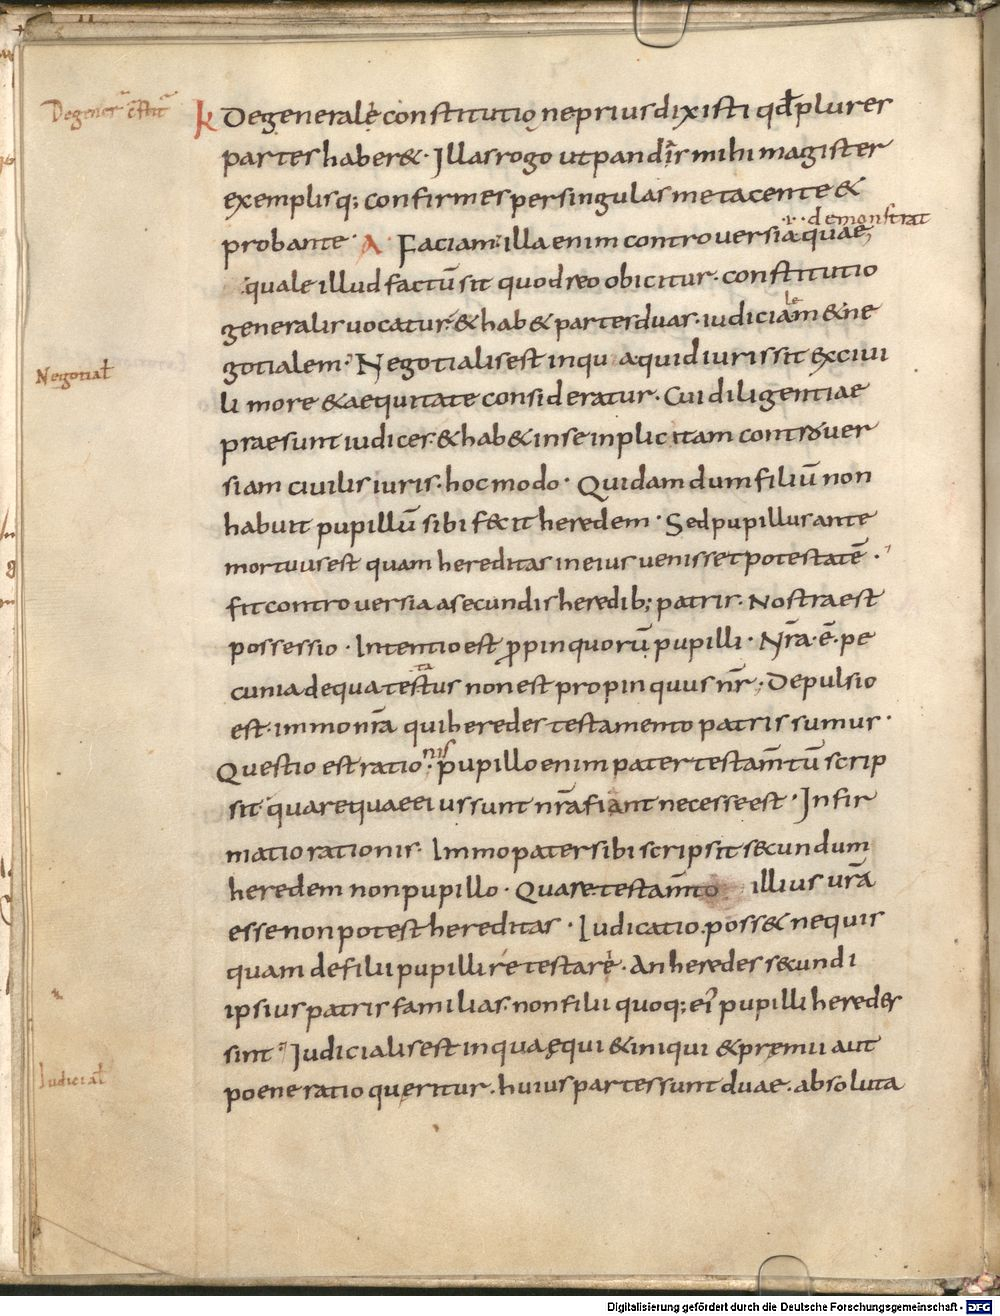 Degener̄ c̄stit̄
K De generale constitutione prius dixisti qđ plures
partes haber&. Illas rogo ut pandas mihi magister
exemplisq; confirmes per singulas me tacente &
probante. A Faciam. illa enim controversia quae
.i. demonstrat
quale illud factū sit quod reo obicitur. constitutio
generalis uocatur. & hab& partes duas. iudicialem & ne
gotialem. Negotialis est in qua quid iuris sit ex ciui
Negotiał
li more & aequitate consideratur. Cui diligentiae
praesunt iudices. & hab& in se inplicitam controuer
siam ciuilis iuris. hoc modo. Quidam dum filiū non
habuit pupillū sibi fecit heredem. Sed pupillus ante
mortuus est quam hereditas in eius uenisset potestatē.
fit controuersia a secundis heredib; patris. Nostra est
possessio. Intentio est ꝓpinquorū pupilli. Nr̄a ē pe
cunia de qua testatus non est propinquus nr̄. Depulsio
est. immo nr̄a qui heredes testamento patris sumus.
Questio est rationis. pupillo enim pater testam̄tū scrip
sit quare quae eius sunt nr̄a fiant necesse est. Infir
matio rationis. Immo pater sibi scripsit secundum
heredem non pupillo. Quare testam̄to illius ur̄a
esse non potest hereditas. Iudicatio. poss& ne quis
quam de filii pupilli re testare. An heredes secundi
ipsius patris familias. non filii quoq; ei' pupilli heredes
sint. Iudicialis est in qua ęqui & iniqui & pręmii aut
Iudiciał
poene ratio queritur. huius partes sunt duae. absoluta
Digitalisierung gefördert durch die Deutsche Forschungsgemeinschaft - DFG